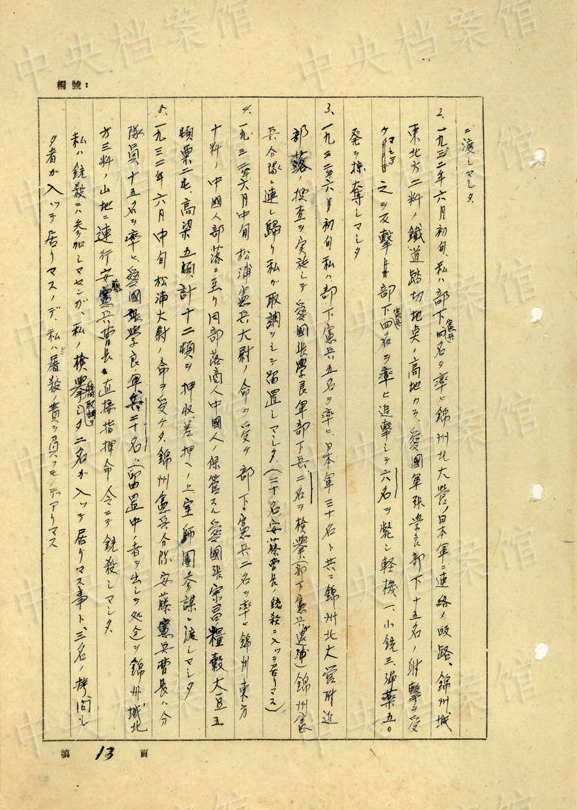 編號：
ニ渡シマシタ
2、一九三二年六月初旬私ハ部下憲兵四名ヲ率ヒ錦州北大営ノ日本軍ニ連絡ノ帰路、錦州城
東北方二粁ノ鐵道踏切地点ノ高地カラ、愛國軍張学良部下十五名ノ射撃ヲ受
ケマシテ之ヲ反撃シ部下憲兵四名ヲ率ヒ追撃シテ六名ヲ斃シ軽機一、小銃三弾薬五〇
発ヲ掠奪シマシタ
3、一九三二年六月初旬私ハ部下憲兵五名ヲ率ヒ日本軍三十名ト共ニ錦州北大営附近
部落ノ捜査ヲ実施シテ愛國張学良軍部下兵二名ヲ検挙(部下憲兵逮捕)錦州憲
兵分隊ニ連レ帰リ私が取調ヲシテ留置シマシタ(二十名安藤曹長ノ銃殺ニ入ッテ居リマス)
4、一九三二年六月中旬松浦憲兵大尉ノ命ヲ受ケ部下憲兵二名ヲ率ヒ錦州東方
十粁ノ中國人部落ニ至リ同部落商人中國人ノ保管スル愛國張宗昌糧穀大豆五
頓粟二屯高粱五頓計十二頓ヲ押收差押ヘ上室師團参謀ニ渡シマシタ
5、一九三二年六月中旬松浦大尉ノ命ヲ受ケタ錦州憲兵分隊安藤憲兵曹長ハ分
隊員十五名ヲ率ヒ愛國張学良軍兵二十名(留置中ノ者ヲ出シ)ヲ処分ヲ錦州城北
方三粁ノ山地ニ連行安藤憲兵曹長ノ直接指揮命令ニテ銃殺シマシタ
私ハ銃殺ニハ参加シマセンガ、私ノ検挙取調シタ二名ガ入ッテ居リマス事ト、三名ノ拷問シ
タ者ガ入ッテ居リマスノデ、私ハ屠殺ノ責ヲ負フモノデアリマス
第 13 頁
中央档案馆